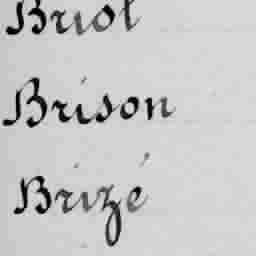 Briot
Brison
Brizé